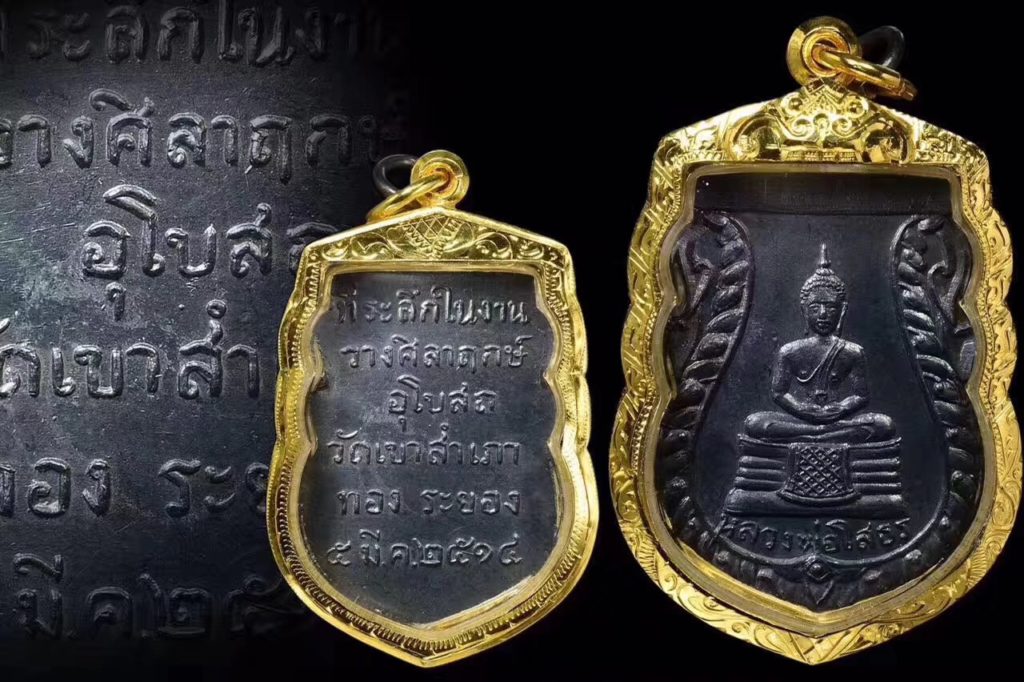 ระลึกในงา
วางศิลาฤกษ์
อุโบส
วัดเขาสำ
ทอง ระย
มี.ค.๒๕
ที่ระลึกในงาน
วางศิลาฤกษ์
อุโบสถ
วัดเขาสำเภา
ทอง ระยอง
๕ มี.ค.๒๕๑๔
หลวงพ่อโสธร